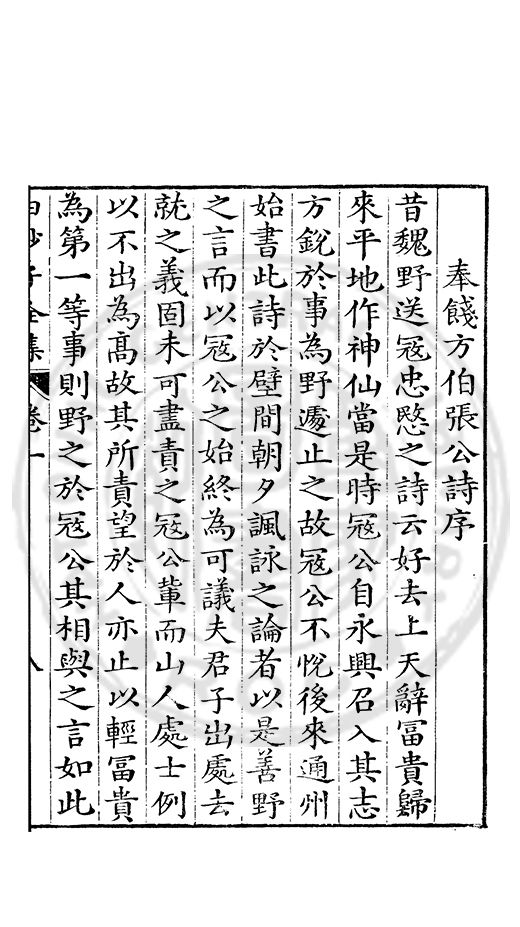 奉餞方伯張公詩序
昔魏野送冦忠愍之詩云好去上天辭冨貴歸
來平地作神仙當是時冦公自永興召入其志
方銳於事為野遽止之故冦公不悅後來通州
始書此詩於壁間朝夕諷詠之論者以是善野
之言而以冦公之始終為可議夫君子出處去
就之義固未可盡責之冦公軰而山人處士例
以不出為髙故其所責望於人亦止以輕冨貴
為第一等事則野之於冦公其相與之言如此
白沙子全集 卷一 八